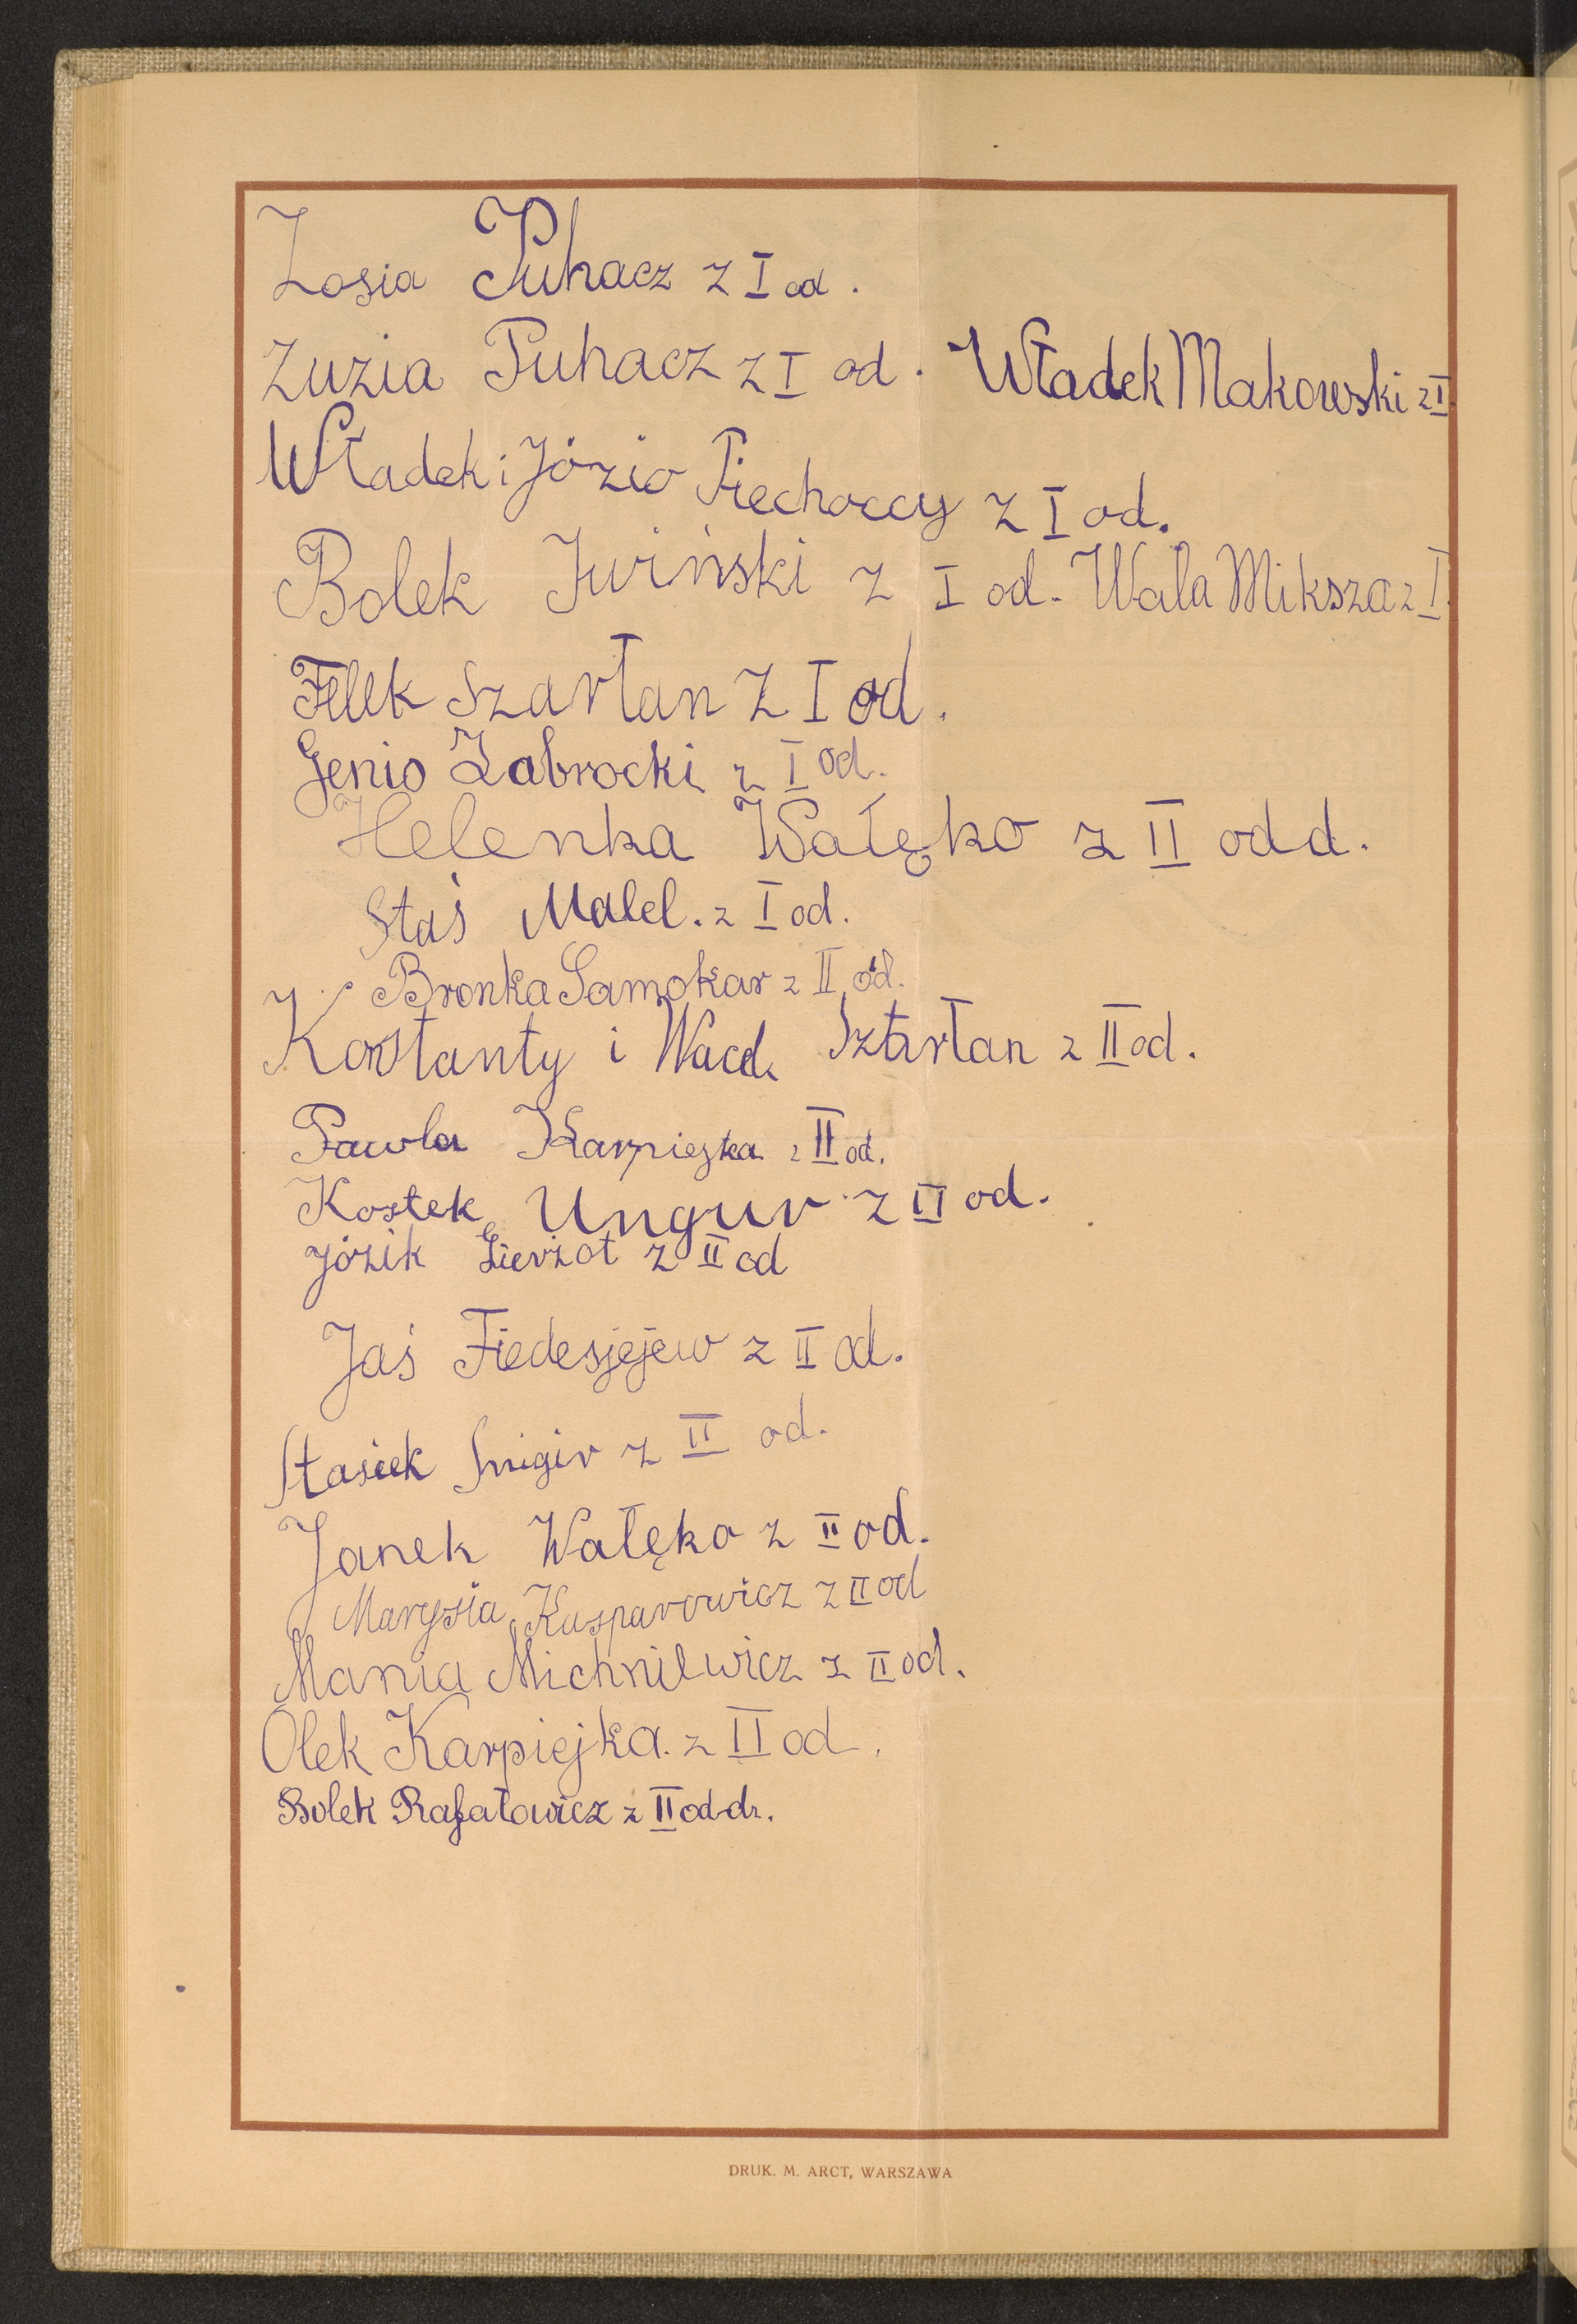 Zosia Puhacz z I od.
Zuzia Puhacz z I od. Władek Makowski z I.
Władek i Józio Piechoccy z I od.
Bolek Jwiński z I od. Wala Miksza z I.
Felek Szarłan z I od.
Genio Zabrocki z I od.
Helenka Wałęko z II odd.
Staś Malel. z I od.
Bronka Samokar z II od.
Konstanty i Wacł. Szarłan z II od.
Pawla Karpiejka z II od.
Kostek Ungur z II od.
Józik Gierżot z II od
Jaś Fiedesjejew z II od.
Stasiek Snigir z II od.
Janek Wałęko z II od.
Marysia Kasparowicz z II od
Mania Michnilwicz z II od.
Olek Karpiejka. z II od.
Bolek Rafałowicz z II oddz.
DRUK. M. ARCT, WARSZAWA